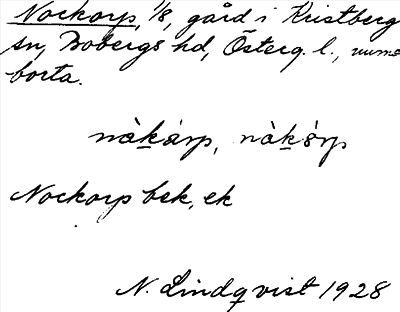 Nockorp, 1/8, gård i Kristberg
sn, Bobergs hd, Österg. l., numa
borta.
nàkárp, nàkŏ́rp
Nockorp bek, ek
N. Lindqvist 1928